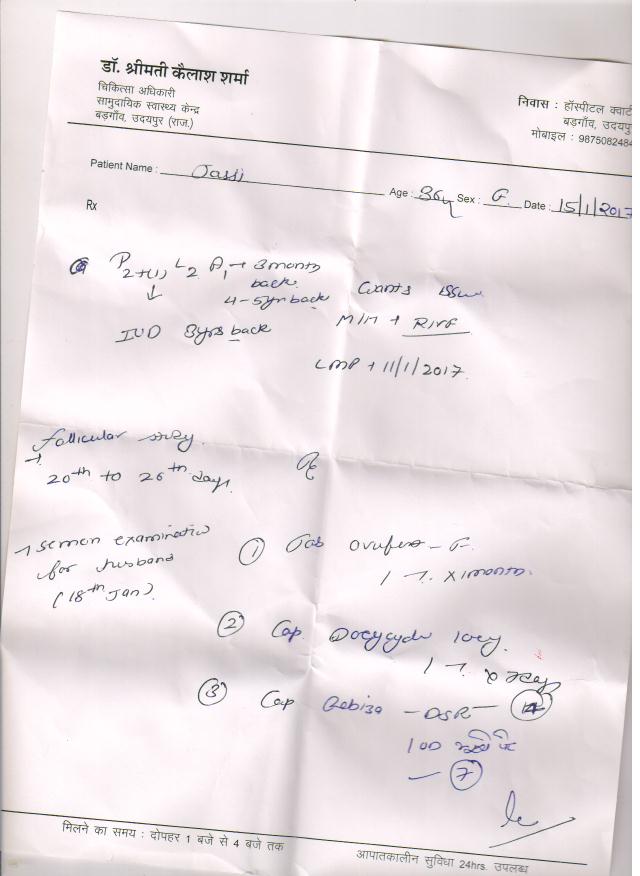 डॉ. श्रीमती कैलाश शर्मा
चिकित्सा अधिकारी
सामुदायिक स्वास्थ्य केन्द्र
बड़गाँव, उदयपुर (राज.)
निवास : हॉस्पीटल क्वार्ट
बड़गाँव, उदयपु
मोबाइल : 987508248
Patient Name : Jassi
Age : 36y Sex : F. Date : 15/1/2017
Rx
P2+(1), L2 A1 → 3 month
back.
4-5yr back
IUD 3yrs back
Wants issue
M/H +
LMP + 11/1/2017.
follicular study.
→ 20th to 26th days.
→ semen examination
for husband
(18th Jan).
Rx
① Tab - F.
1 × 1 month.
② Cap.
1
③ Cap Rabiza - DSR - 14
100
- 7
मिलने का समय : दोपहर 1 बजे से 4 बजे तक
आपातकालीन सुविधा 24hrs. उपलब्ध